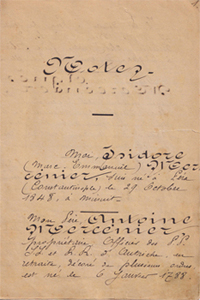 Notes
Moi, Isidore
(Marc-Emmanuel) Mercenier, suis né à Péra
(Constantinople) le 29 Octobre
1848, à minuit.
Mon Père Antoine
Mercenier,
propriétaire, Officier des
en
retraite, décoré de plusieurs ordres
est né le 6 Janvier 1788